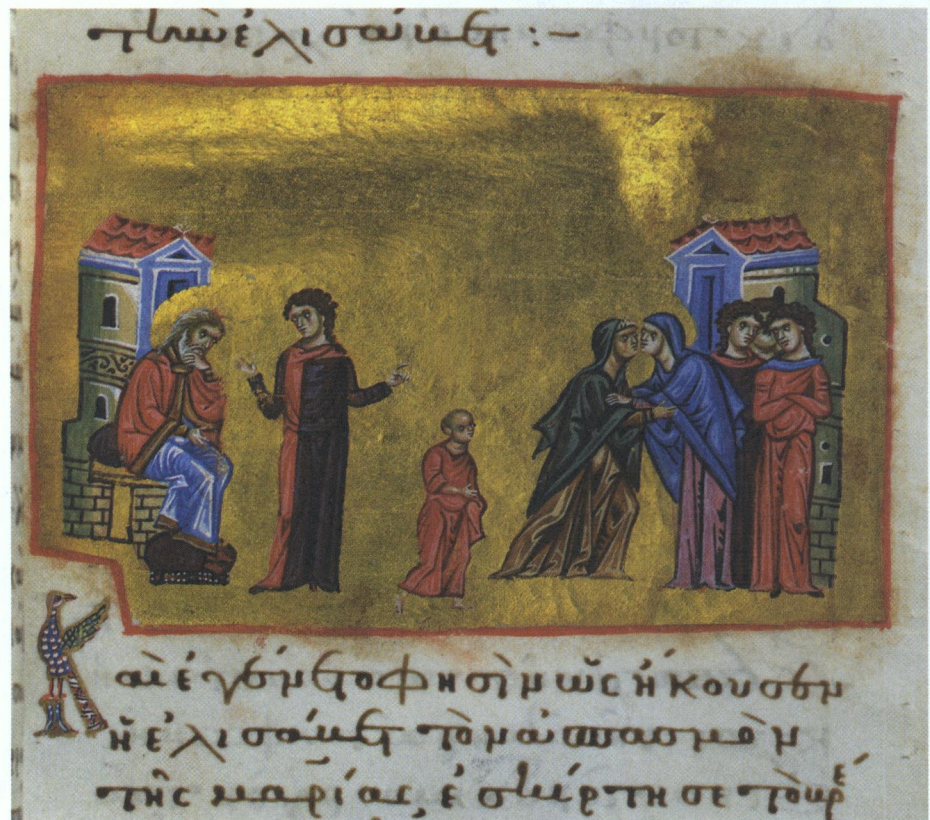 τὴν ἐλισάβετ :–
Καὶ ἐγένετο φησὶν ὡς ἤκουσεν
ἡ ἐλισάβετ τὸν ἀσπασμὸν
τῆς μαρίας, ἐσκίρτησε τὸ βρέ